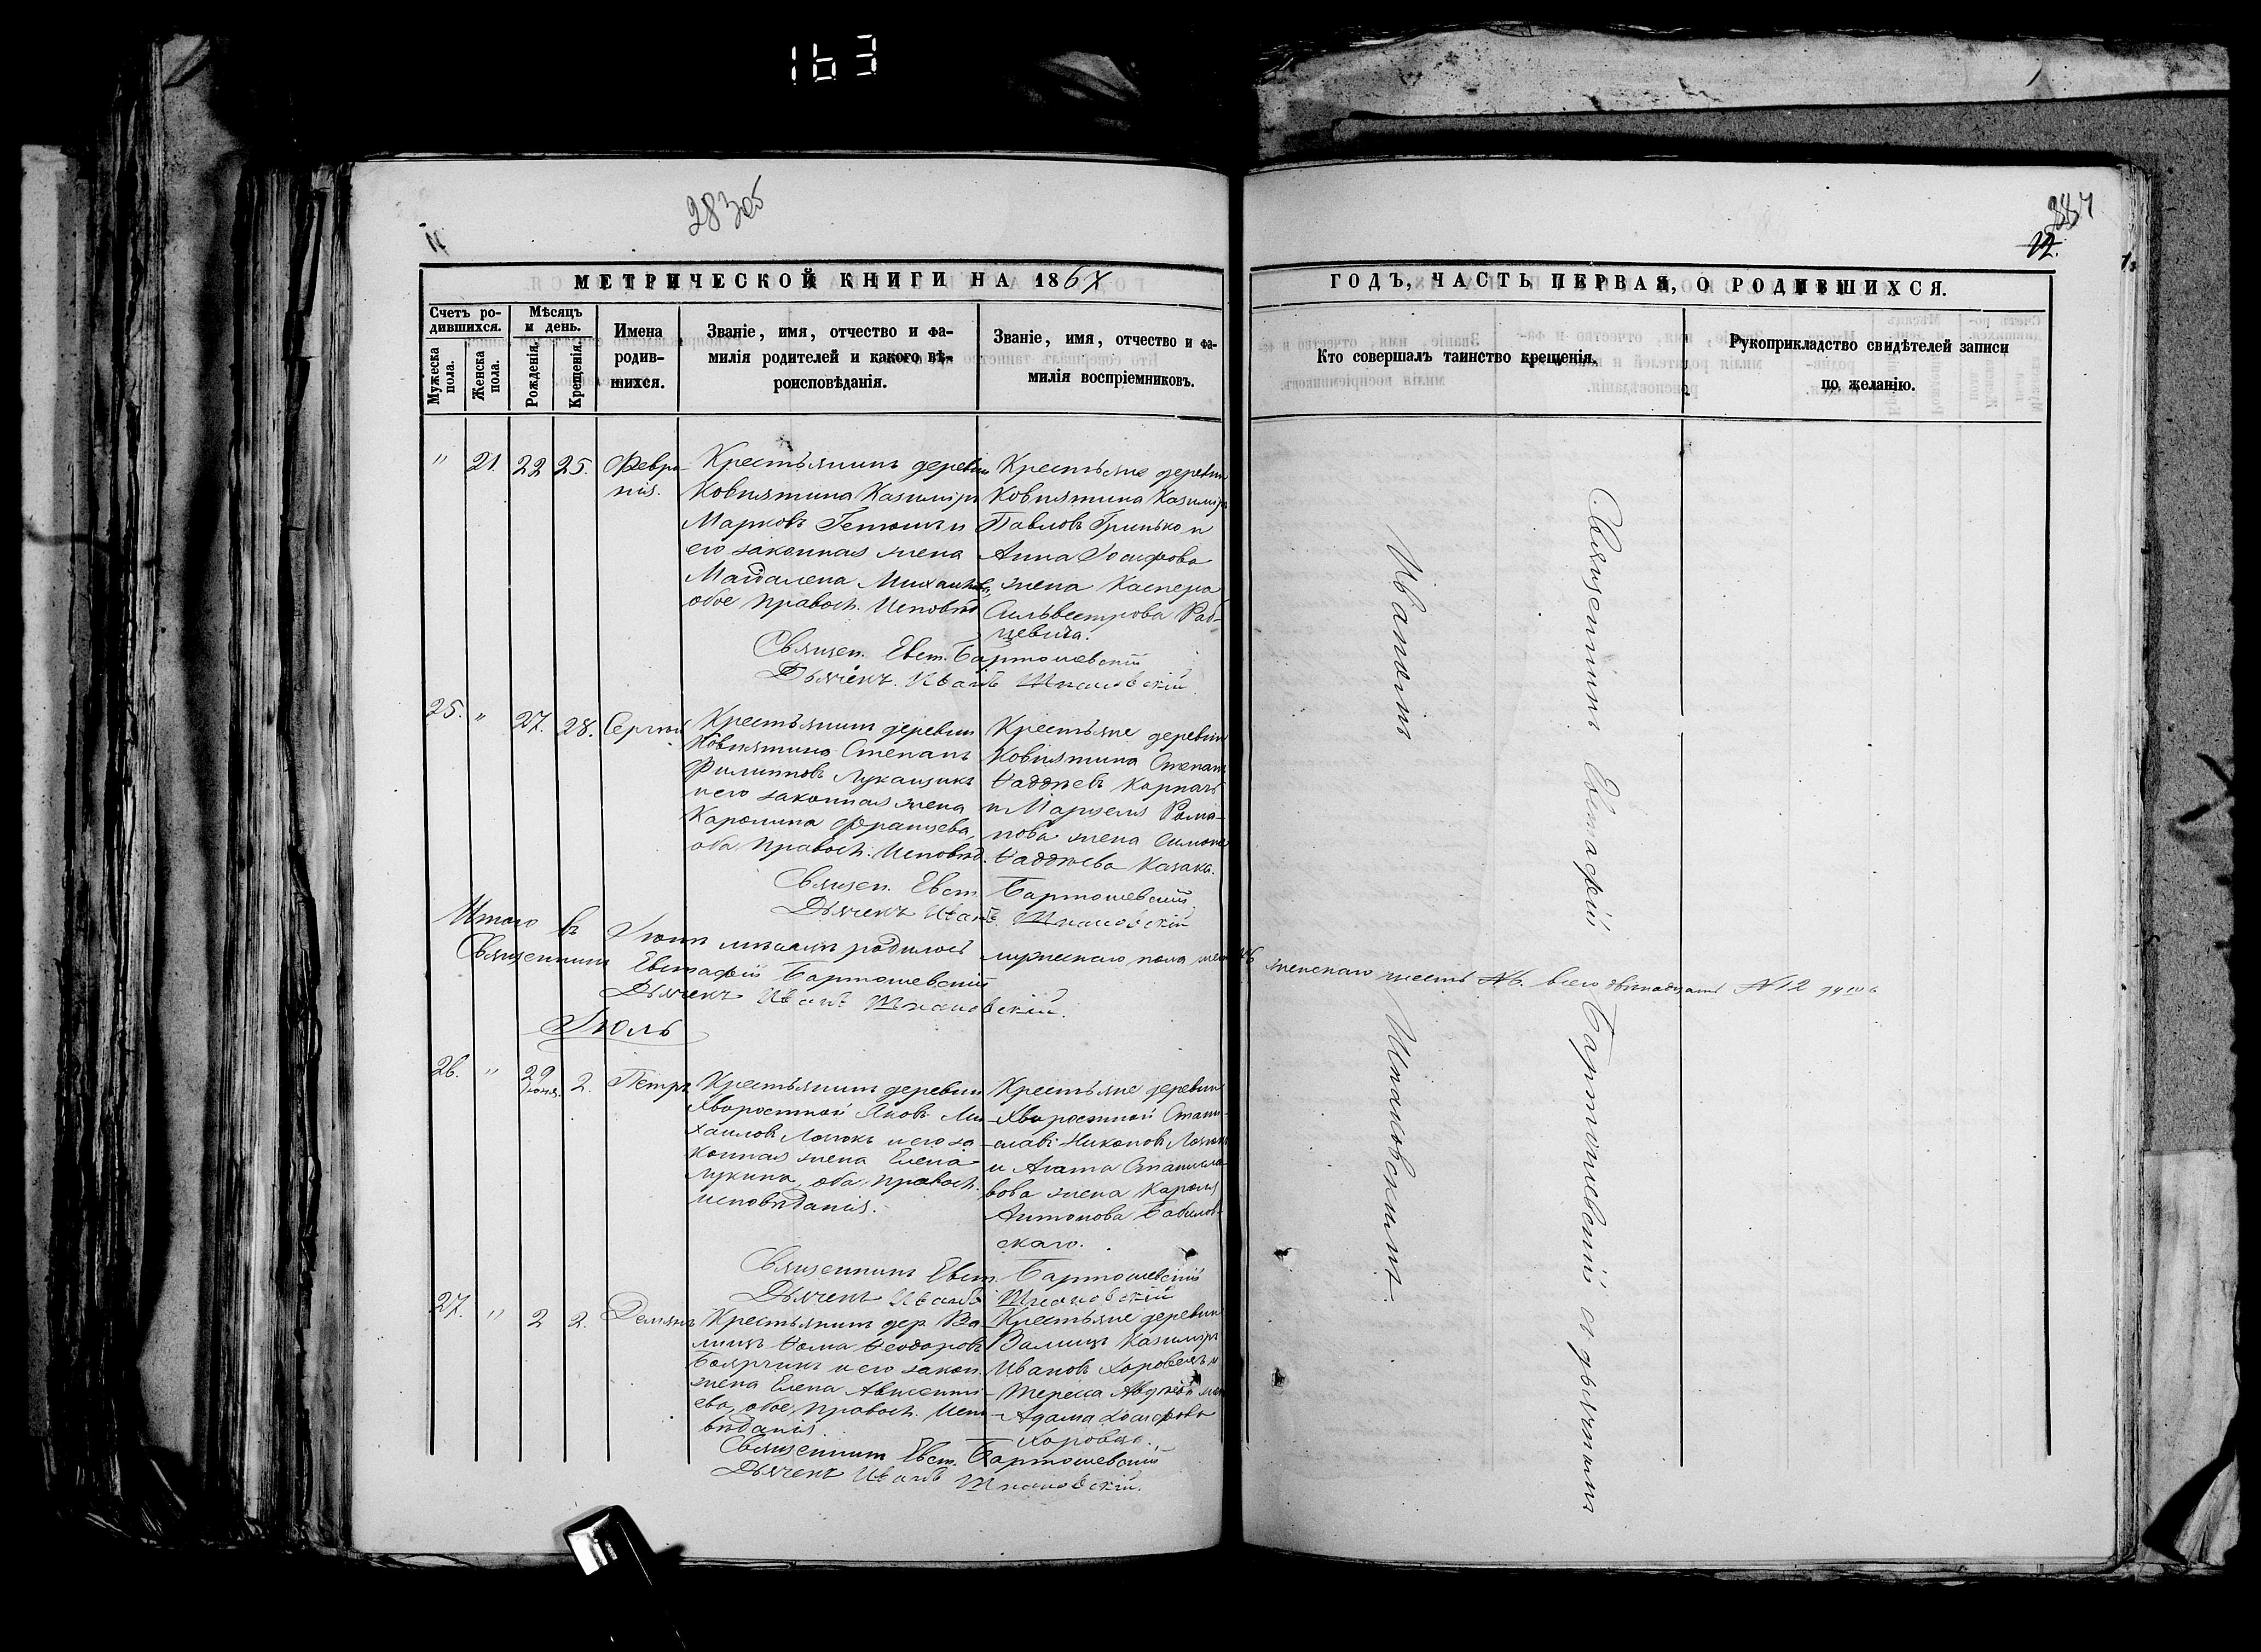 163
283об
11
284
12.
МЕТРИЧЕСКОЙ КНИГИ НА 1867
ГОДЪ, ЧАСТЬ ПЕРВАЯ, О РОДИВШИХСЯ.
Счетъ ро-
дившихся.
Мужеска
пола.
Женска
пола.
Мѣсяцъ
и день.
Рожденія.
Крещенія.
Имена
родив-
шихся.
Званіе, имя, отчество и фа-
милія родителей и какого вѣ-
роисповѣданія.
Званіе, имя, отчество и фа-
милія воспріемниковъ.
Кто совершалъ таинство крещенія.
Рукоприкладство свидѣтелей записи
по желанію.
" 21. 22 25. Февро-
нія.
Крестьянинъ деревни
Ковнятина Казимiръ
Марковъ и
его законная жена
Магдалена Михайлова,
обое правосл. Исповѣд
Крестьяне деревни
Ковнятина Казимiръ
Павловъ Гринько и
Анна Іосифова
жена Каспера
Сильвестрова Раб-
цевича.
Священ. Евст. Бартошевскій
Дьячекъ Иванъ
25. " 27. 28. Сергій
Крестьянинъ деревни
Ковнятина Степанъ
Филиповъ Лукащикъ
и его законная жена
Каролина Францева,
оба правосл. Исповѣд.
Крестьяне деревни
Ковнятина Степанъ
Ѳаддѣевъ Карпачъ
и Марцеля Рома-
нова жена Симона
Ѳаддѣева Казака.
Священ. Евст. Бартошевскій
Дьячекъ Иванъ
Итого въ Іюнѣ мѣсяцѣ родилось мужескаго пола шесть №6 женскаго шесть №6. всего двѣнадцать №12 душъ
Священникъ Евстафій Бартошевскій
Дьячекъ Иванъ
Іюль
26. " 29 Іюня. 2. Петръ
Крестьянинъ деревни
Хворостной Яковъ Ми-
хаиловъ и его за-
конная жена Елена
Лукина, оба правосл.
исповѣданія.
Крестьяне деревни
Хворостной Стани-
славъ Никоновъ
и Агата Станисла-
вова жена Кароля
Антонова Бабилов-
скаго.
Священникъ Евст. Бартошевскій
Дьячекъ Иванъ
27. " 2 2. Демянъ
Крестьянинъ дер. Ва-
лищъ Ѳома Ѳеодоровъ
Боярчикъ и его закон.
жена Елена
ева, обое правосл. Испо-
вѣданія.
Крестьяне деревни
Валищъ Казимiръ
Ивановъ Хоровецъ и
Тереса жена
Адама Іосифова
Хоровца.
Священникъ Евст. Бартошевскій
Дьячекъ Иванъ
Священникъ Евстафій Бартошевскій съ дьячкомъ
Иваномъ